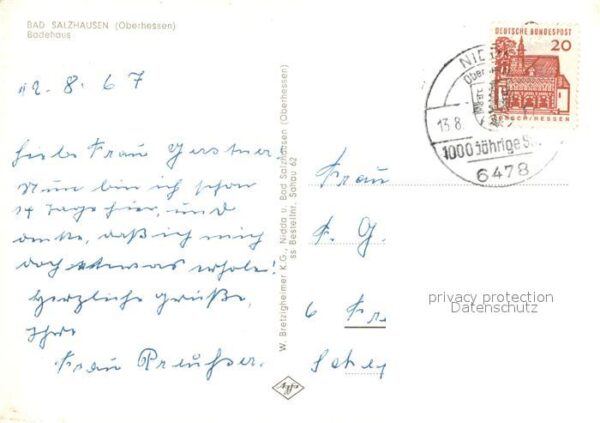 BAD SALZHAUSEN (Oberhessen)
Badehaus
12. 8. 67
Liebe Frau Gerstner.
Nun bin ich schon
14 Tage hier, und
denke, daß ich mich
doch etwas erhole!
Herzliche Grüße,
Ihre
Frau
W. Bretzigheimer K.G., Nidda u. Bad Salzhausen (Oberhessen)
ss Bestellnr. Sahau 62
DEUTSCHE BUNDESPOST
20
LORSCH/HESSEN
13.8.
1000 Jährige
6478
Frau
F. G.
6 Fr
privacy protection
Datenschutz